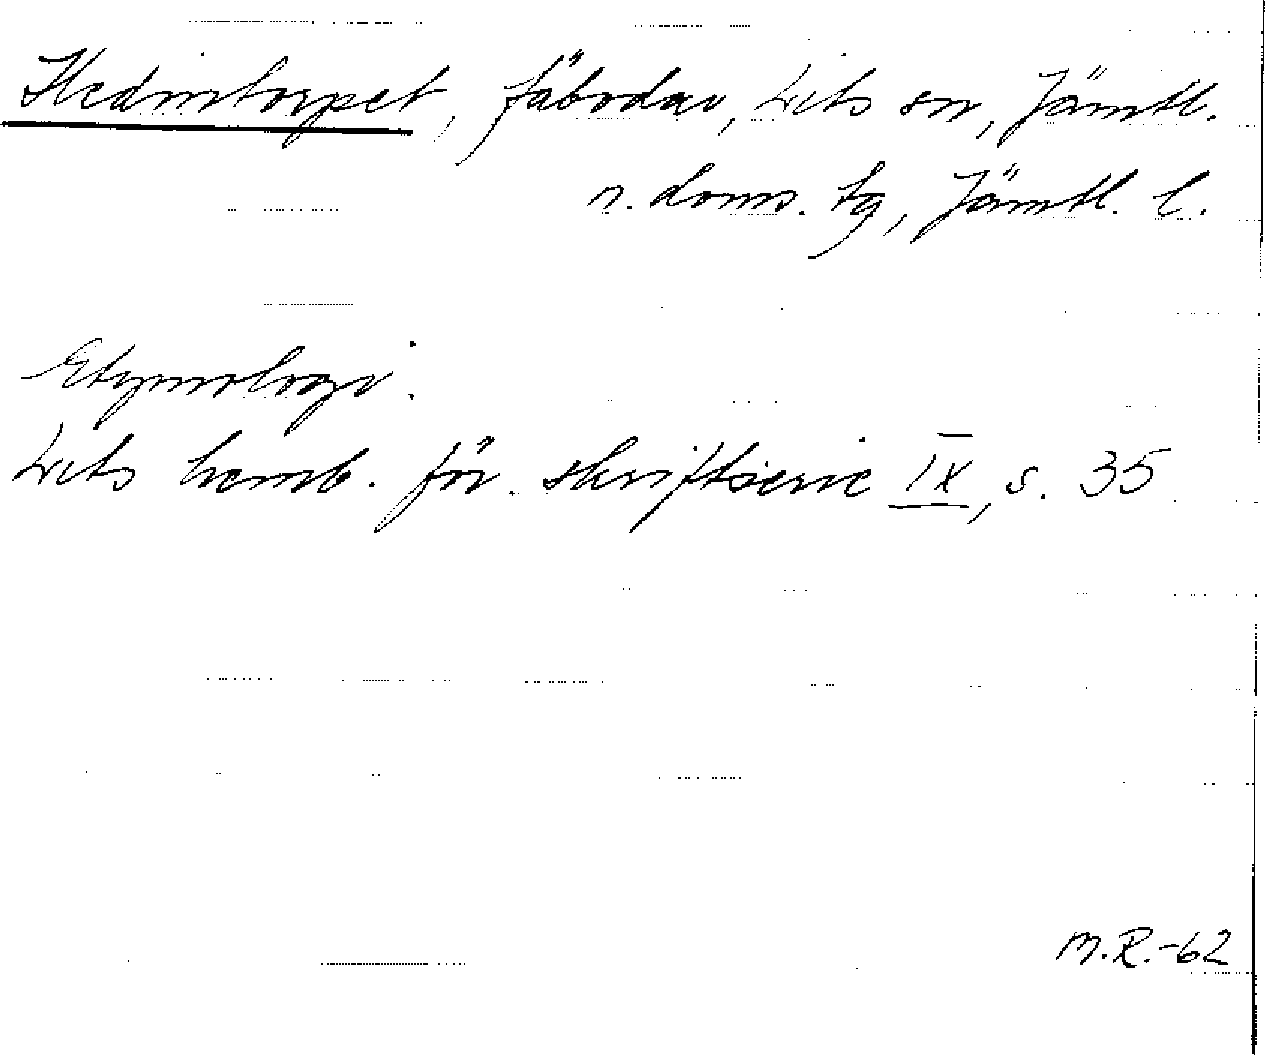 Hedintorpet, fäbodar, Lits sn, Jämtl.
n. doms. tg, Jämtl. l.
Etymologi:
Lits hemb. för. skriftserie IX, s. 35
M.R.-62